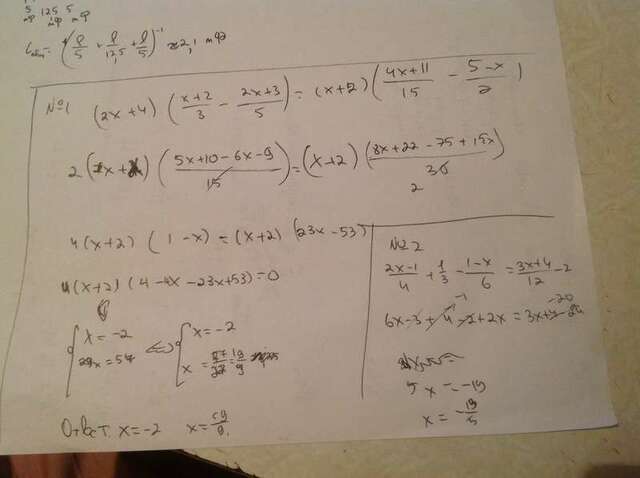 5 125 5
мф мф мф
Cобщ = (1/5 + 1/12,5 + 1/5)⁻¹ ≈ 2,1 мф
№1
(2x+4) (x+2/3 - 2x+3/5) = (x+2) (4x+11/15 - 5-x/2)
2 (x+2) (5x+10-6x-9/15) = (x+2) (8x+22-75+15x/30)
2
4(x+2) (1-x) = (x+2) (23x-53)
(x+2) (4-4x-23x+53) = 0
{ x = -2
27x = 57 <=> { x = -2
x = 57/27 = 19/9
Ответ: x = -2 x = 19/9.
№2
2x-1/4 + 1/3 - 1-x/6 = 3x+4/12 - 2
-1 -20
6x-3+4-2+2x = 3x+4-24
5x = -19
x = -19/5